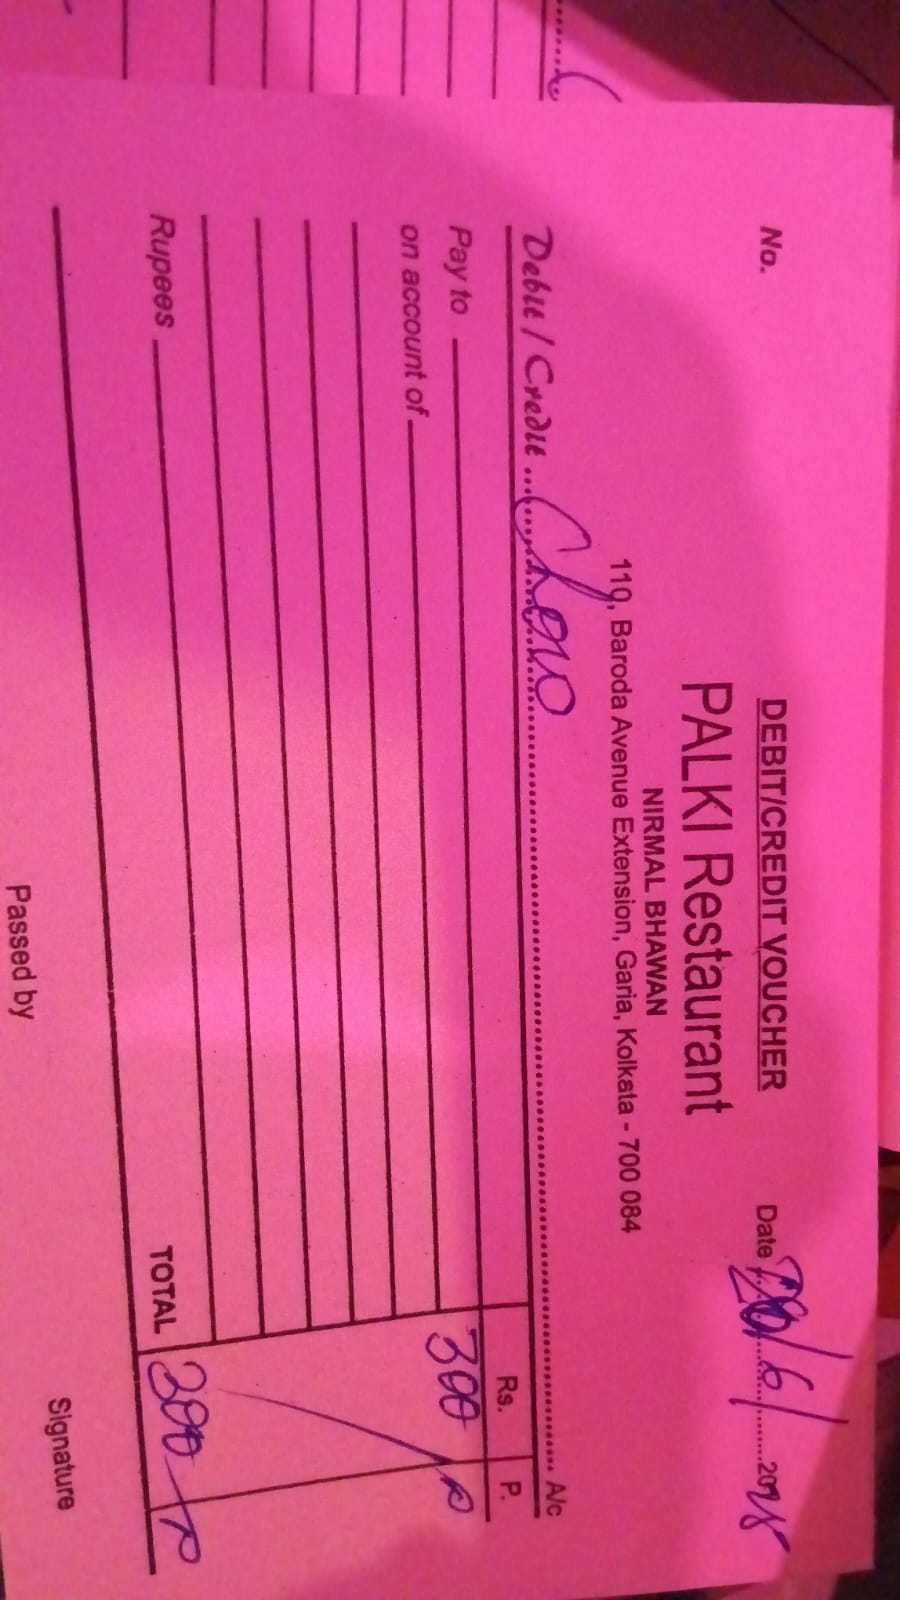 DEBIT/CREDIT VOUCHER
No.
Date 20/6/2025
PALKI Restaurant
NIRMAL BHAWAN
110, Baroda Avenue Extension, Garia, Kolkata - 700 084
Debit / Credit ........ A/c
Rs. P.
Pay to 300
on account of
Rupees
TOTAL 300
Passed by
Signature